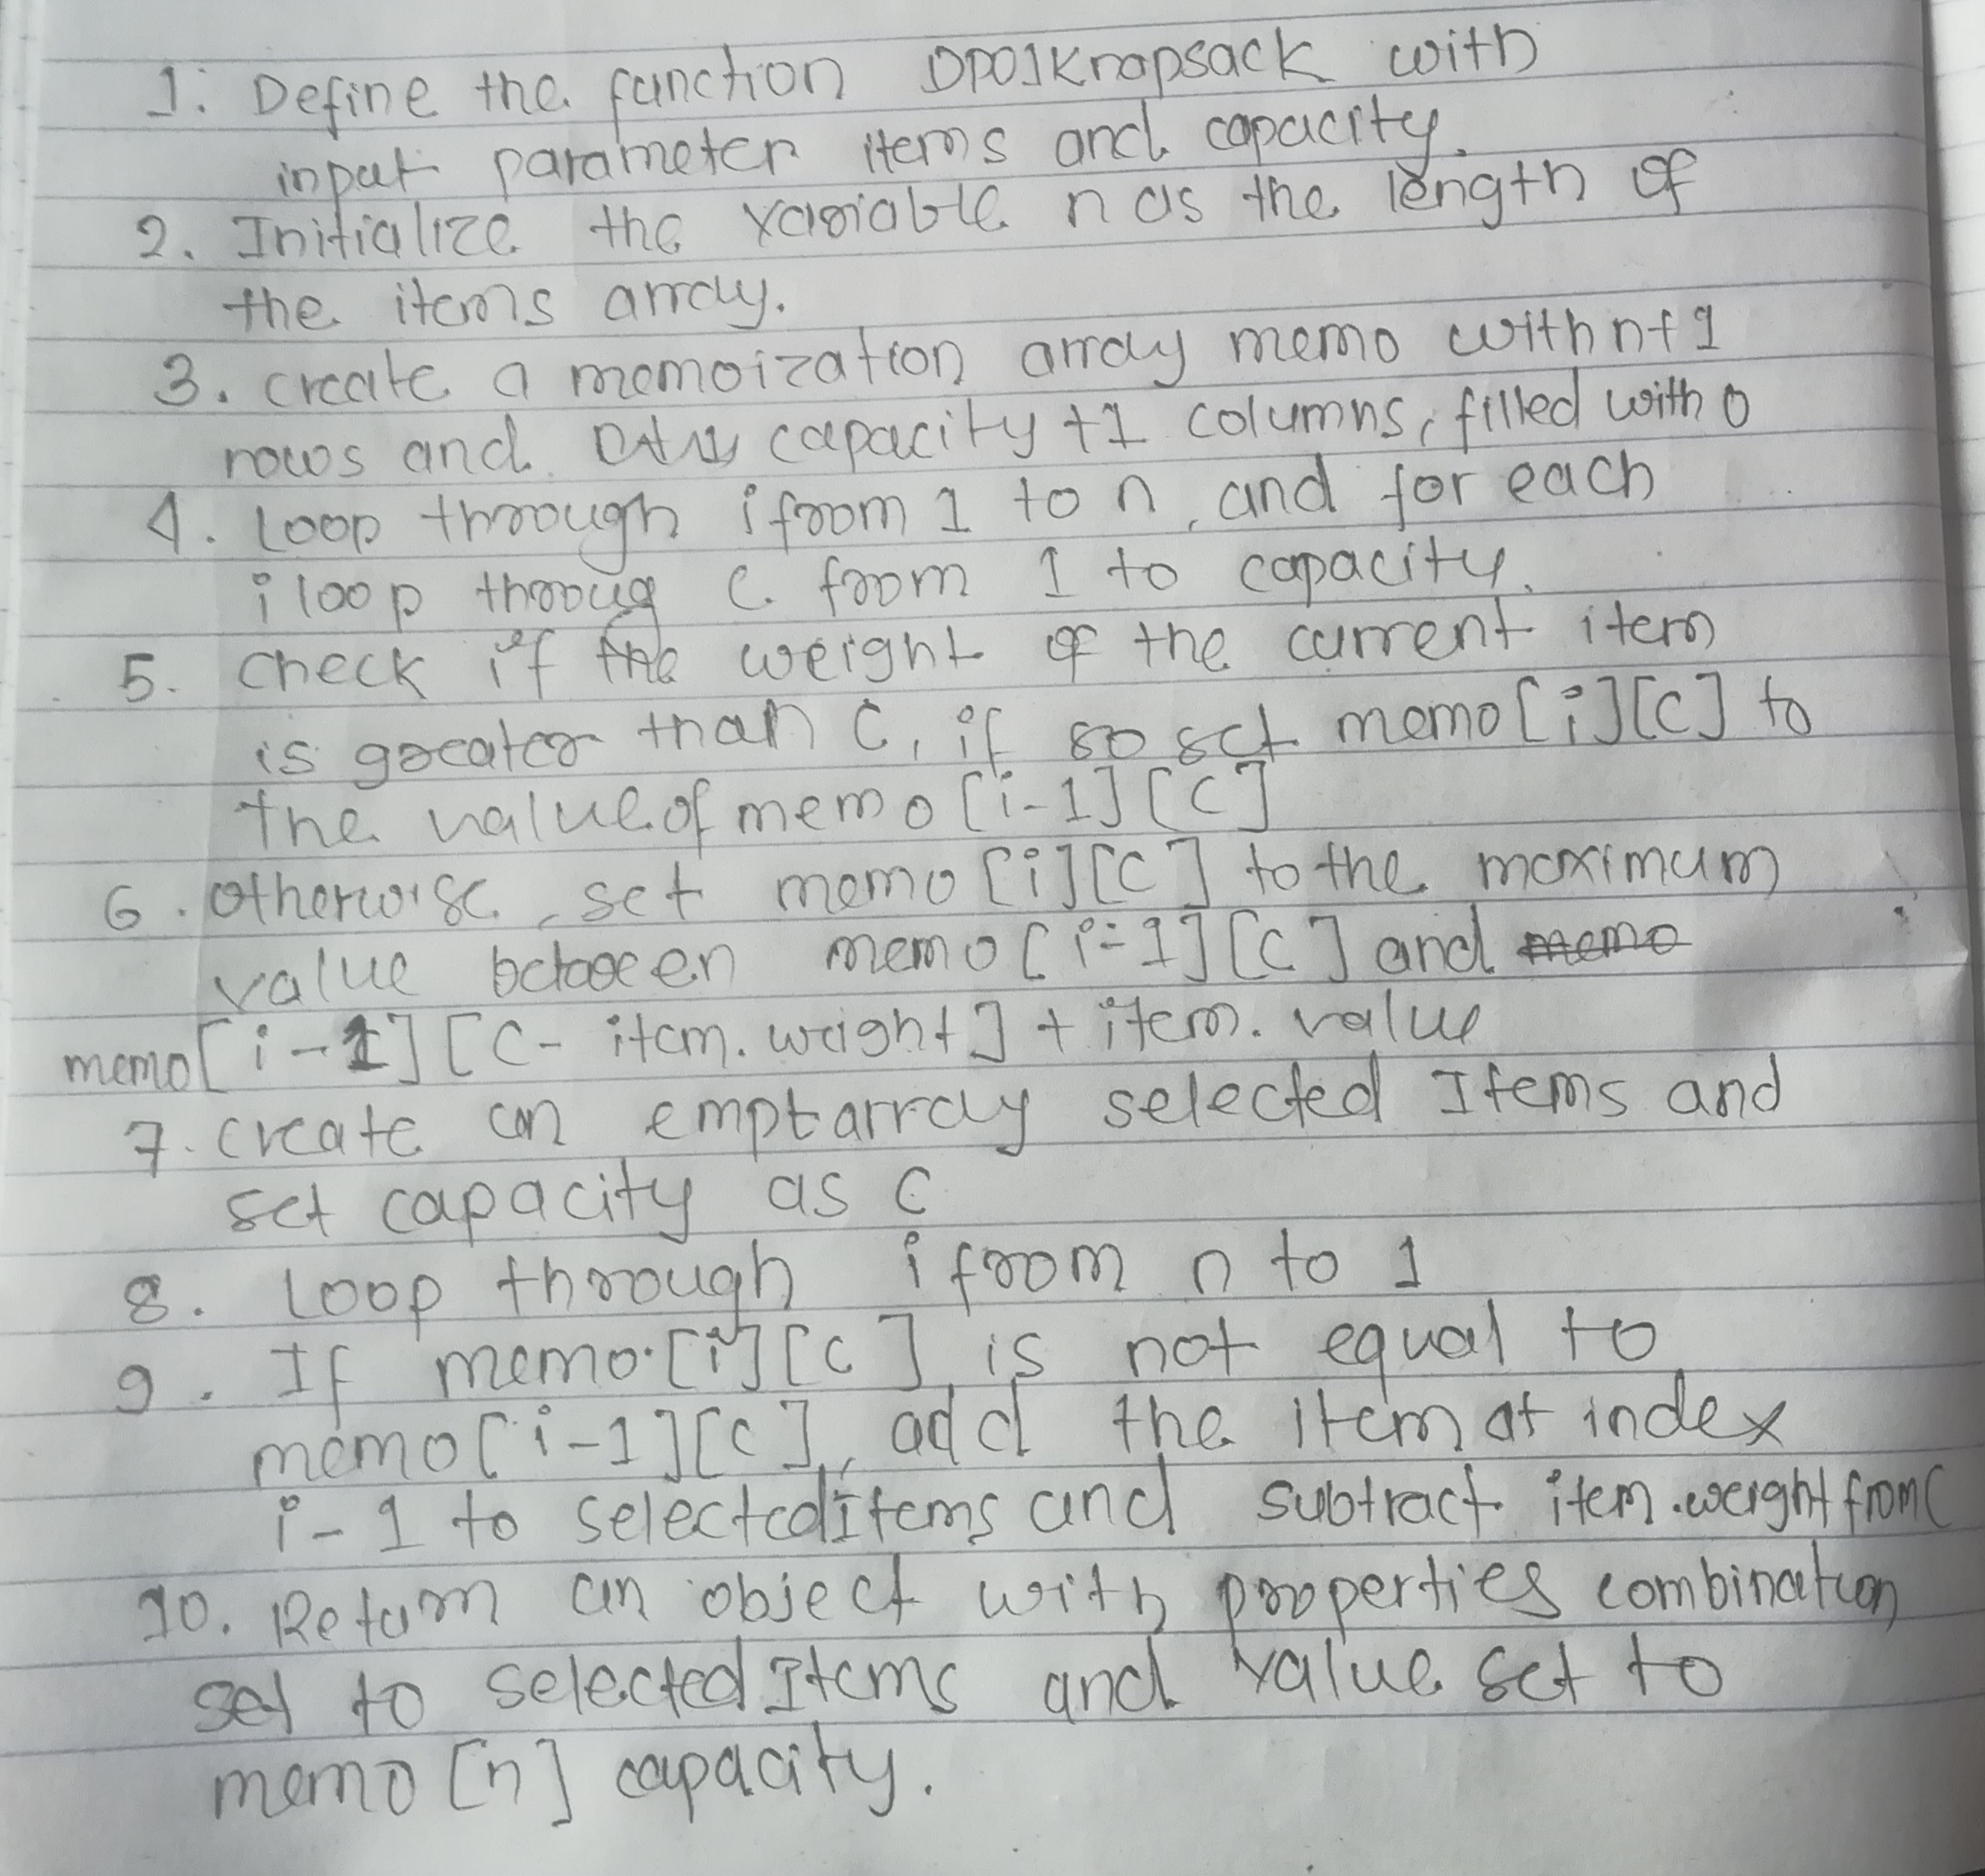 1. Define the function DP01Knapsack with
input parameter items and capacity.
2. Initialize the variable n as the length of
the items array.
3. create a memoization array memo with n+1
rows and capacity +1 columns, filled with 0
4. Loop through i from 1 to n, and for each
i loop throug c from 1 to capacity.
5. check if the weight of the current item
is greater than C, if so set memo[i][C] to
the value of memo [i-1][C]
6. otherwise, set memo [i][C] to the maximum
value between memo[i-1][C] and memo
memo[i-1][C- item.weight] + item.value
7. create an empt array selected Items and
set capacity as C
8. Loop through i from n to 1
9. If memo.[i][c] is not equal to
memo[i-1][c], add the item at index
i-1 to selectedItems and subtract item.weight from C
10. Return an object with properties combination
set to selectedItems and value set to
memo [n] capacity.